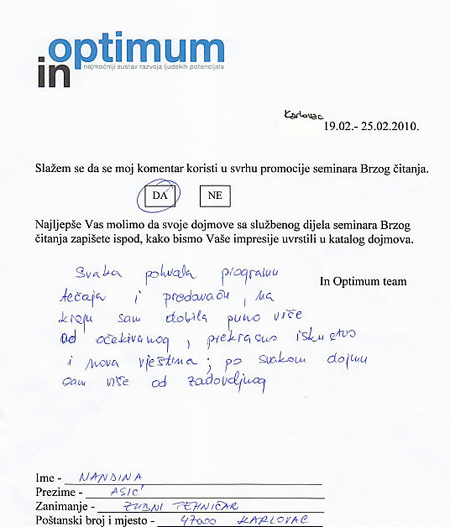 in optimum
najmoćniji sustav razvoja ljudskih potencijala
Karlovac
19.02.- 25.02.2010.
Slažem se da se moj komentar koristi u svrhu promocije seminara Brzog čitanja.
DA NE
Najljepše Vas molimo da svoje dojmove sa službenog dijela seminara Brzog
čitanja zapišete ispod, kako bismo Vaše impresije uvrstili u katalog dojmova.
In Optimum team
Svaka pohvala programu
tečaja i predavaču, na
kraju sam dobila puno više
od očekivanog, prekrasno iskustvo
i nova vještina; po svakom dojmu
sam više od zadovoljnog
Ime - NANDINA
Prezime - ASIĆ
Zanimanje - ZUBNI TEHNIČAR
Poštanski broj i mjesto - 47000 KARLOVAC